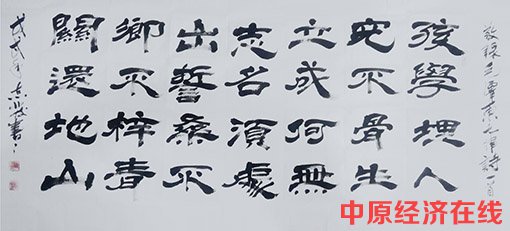 敬録毛澤東七律詩一首
孩兒立志出鄉關
學不成名誓不還
埋骨何須桑梓地
人生無處不青山
戊戌年 書
中原经济在线